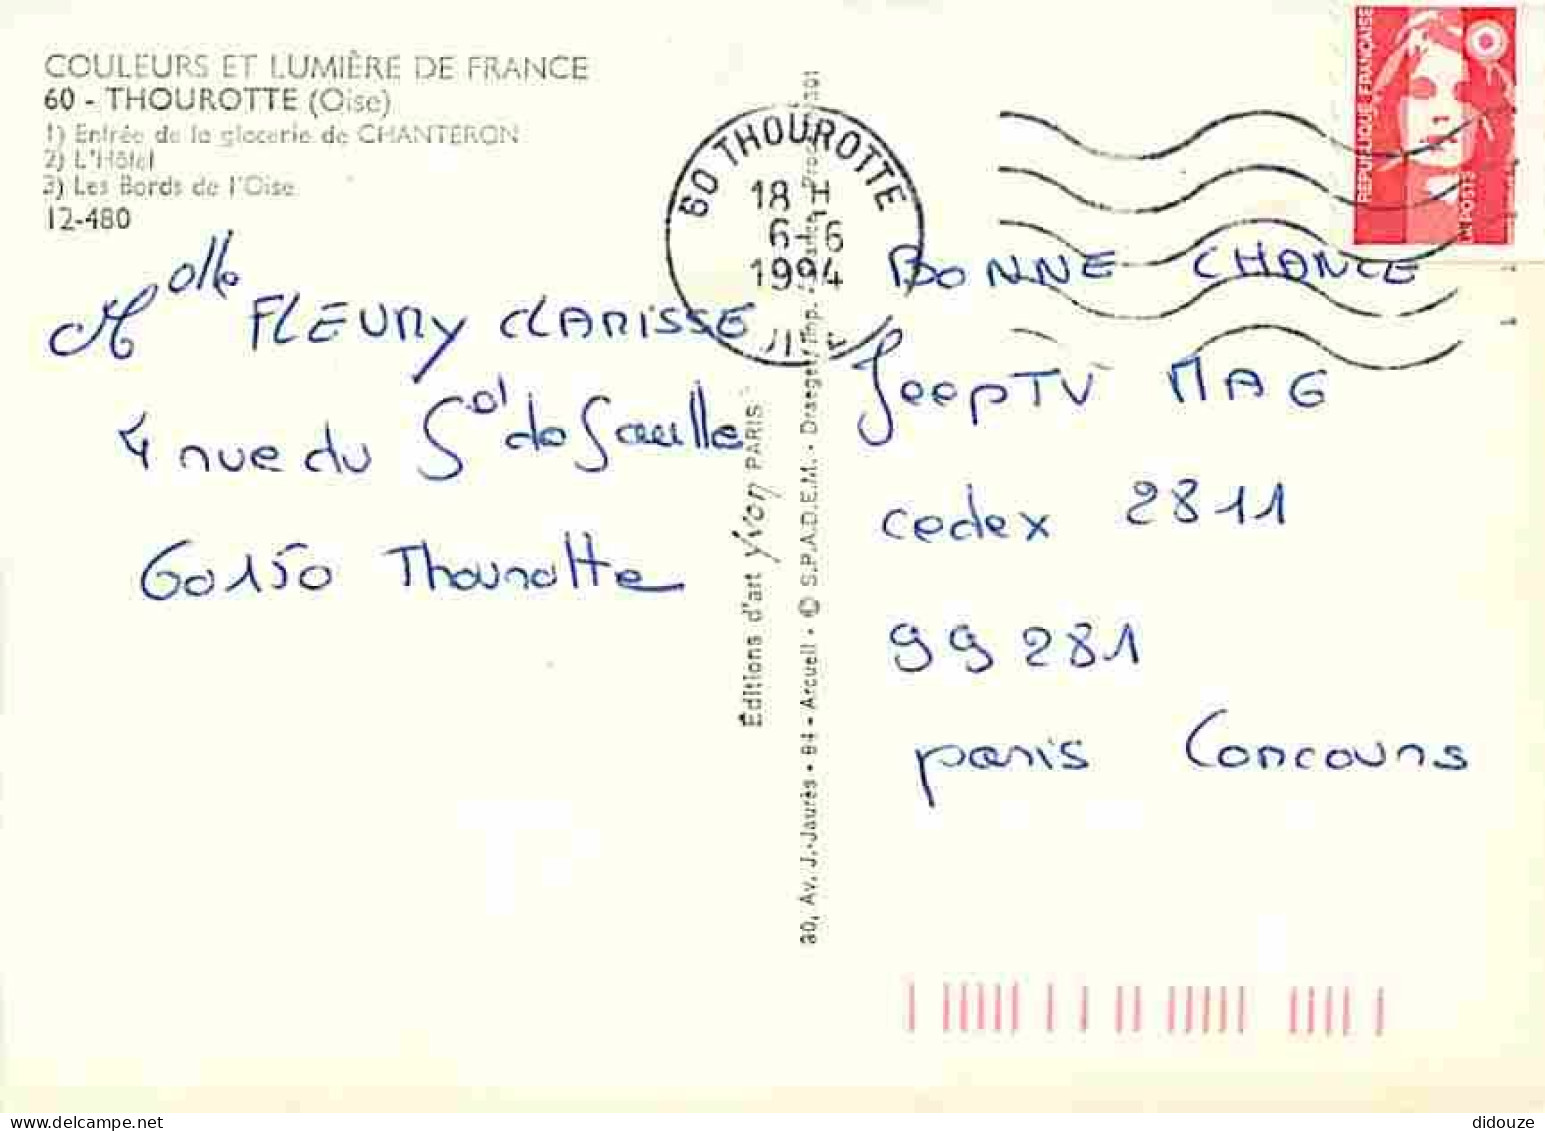 COULEURS ET LUMIÈRE DE FRANCE
60 - THOUROTTE (Oise)
1) Entrée de la glacerie de CHANTERON
2) L'Hôtel
3) Les Bords de l'Oise
12-480
60 THOUROTTE
18 H
6-6
1994
RÉPUBLIQUE FRANÇAISE
LA POSTE
Melle FLEURY CLARISSE
4 rue du Gal de Gaulle
60150 Thourotte
Editions d'art Yvon PARIS
30, Av. J.-Jaurès - 94 - Arcueil - © S.P.A.D.E.M. - Draeger, Imp.
BONNE CHANCE
JeepTV MAG
cedex 2811
99281
paris Concours
didouze